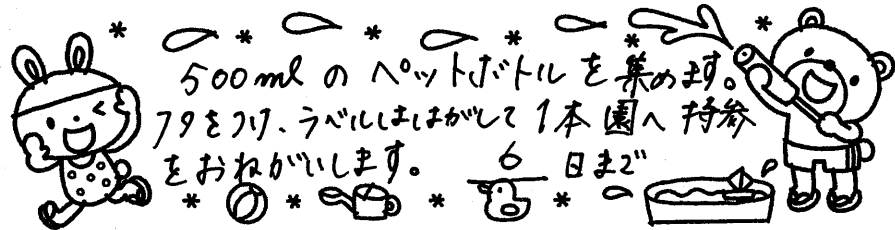 500mlのペットボトルを集めます。
フタをつけ、ラベルははがして1本園へ持参
をおねがいします。 6日まで